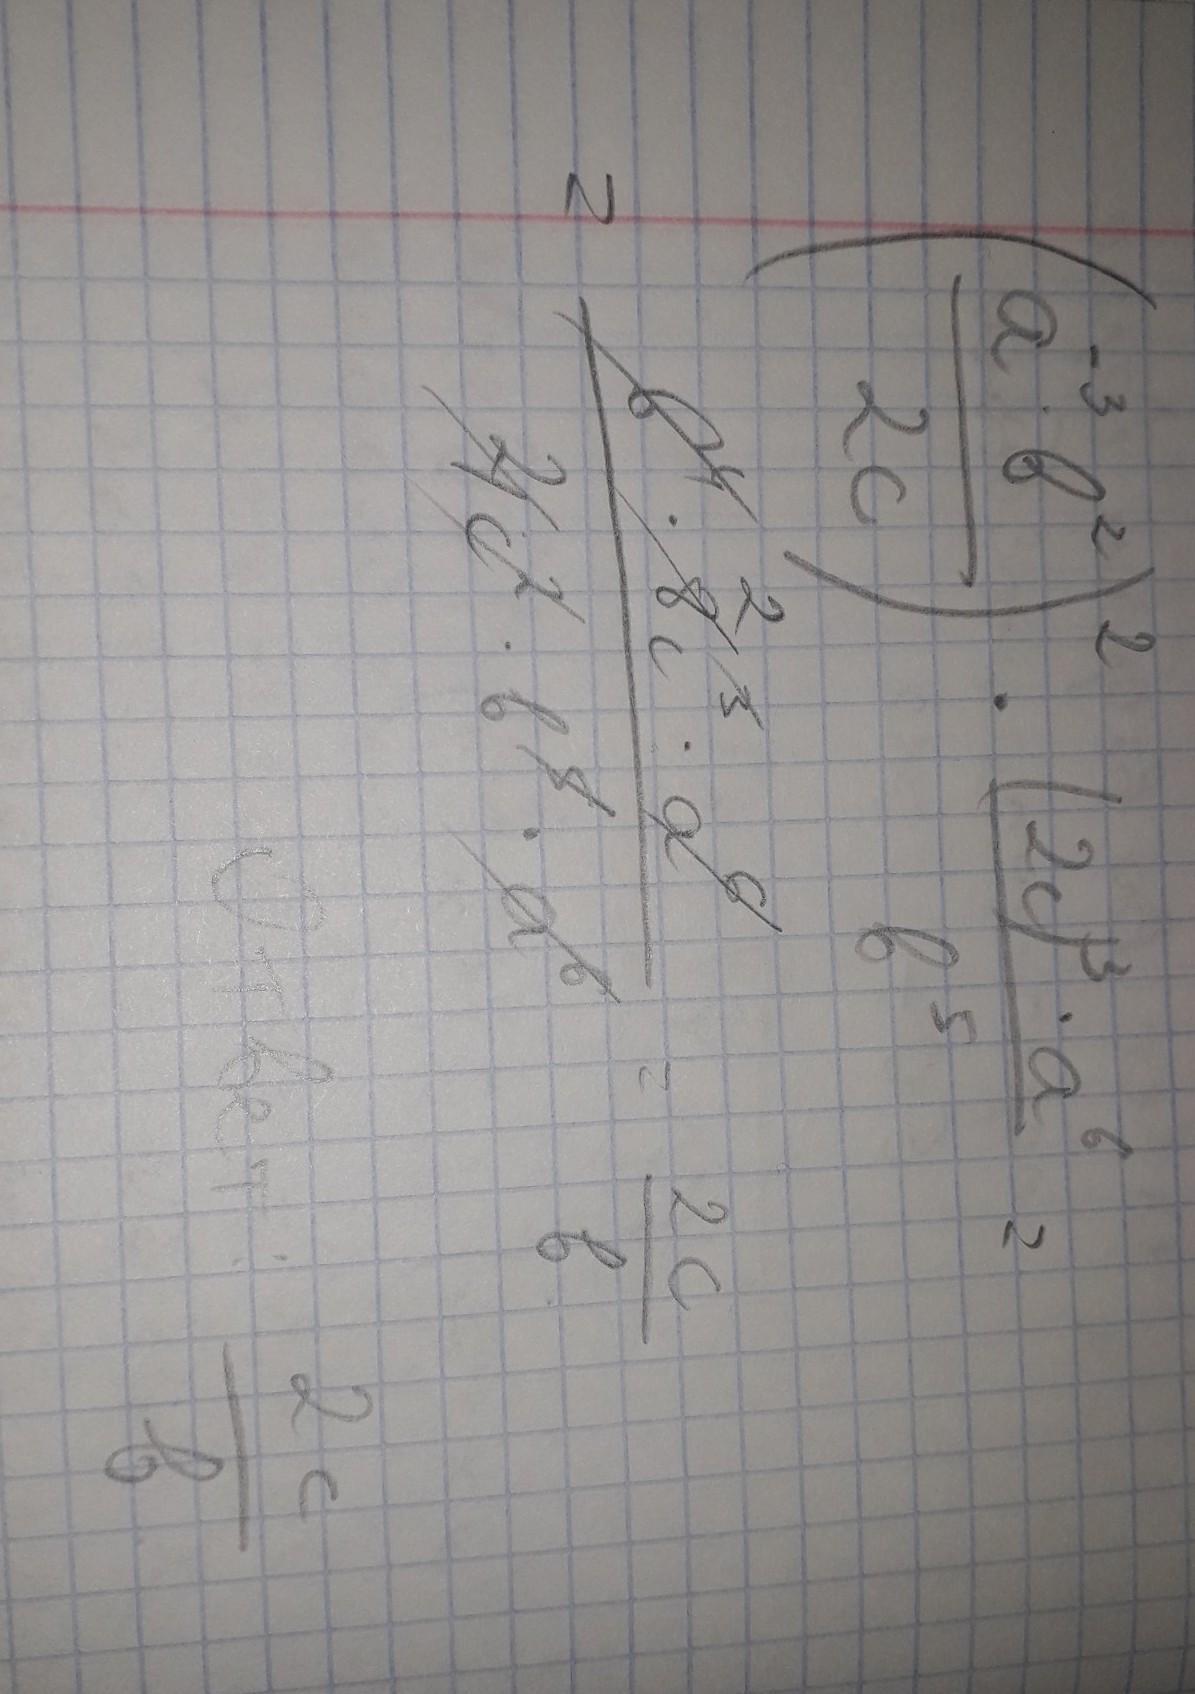 (a⁻³ · b² / 2c)² · (2c)³ · a⁶ / b⁵ =
= b⁴ · 8c³ · a⁶ / 4c² · b⁵ · a⁶ = 2c / b
Ответ: 2c / b